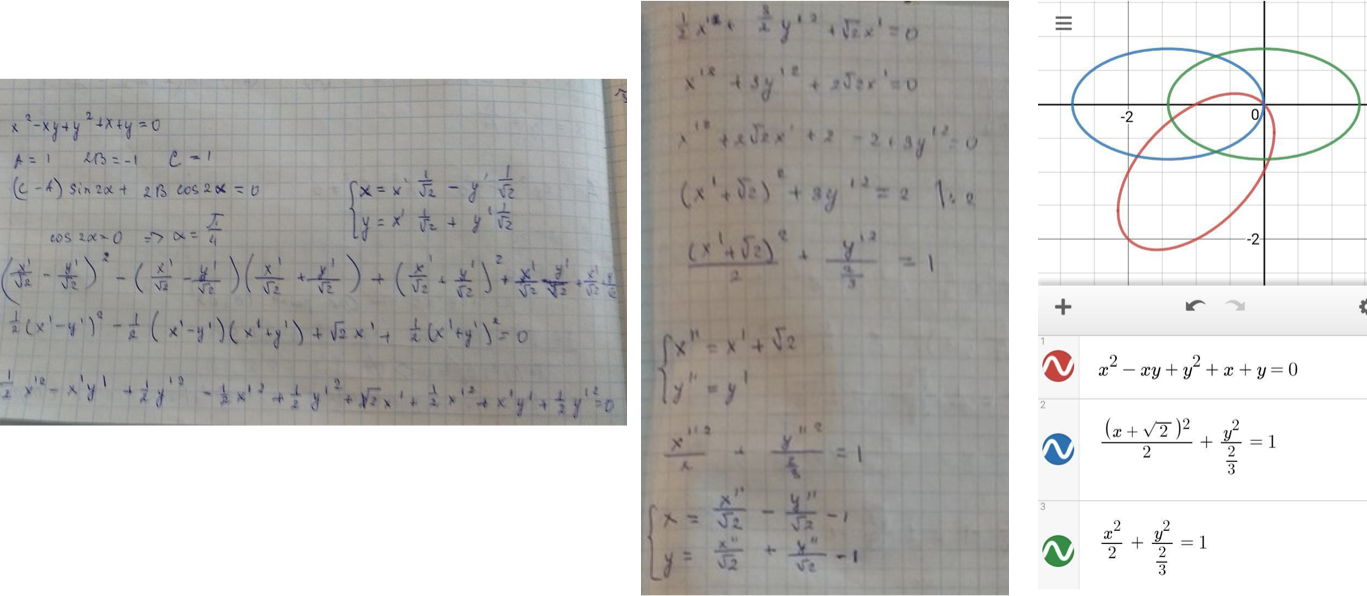 x² - xy + y² + x + y = 0
A = 1 2B = -1 C = 1
(C - A) sin2α + 2B cos2α = 0
cos2α = 0 => α = π/4
{ x = x' 1/√2 - y' 1/√2
y = x' 1/√2 + y' 1/√2
(x'/√2 - y'/√2)² - (x'/√2 - y'/√2)(x'/√2 + y'/√2) + (x'/√2 + y'/√2)² + x'/√2 - y'/√2 + x'/√2
1/2 (x' - y')² - 1/2 (x' - y')(x' + y') + √2 x' + 1/2 (x' + y')² = 0
1/2 x'² - x'y' + 1/2 y'² - 1/2 x'² + 1/2 y'² + √2 x' + 1/2 x'² + x'y' + 1/2 y'² = 0
1/2 x'² + 3/2 y'² + √2 x' = 0
x'² + 3y'² + 2√2 x' = 0
x'² + 2√2 x' + 2 - 2 + 3y'² = 0
(x' + √2)² + 3y'² = 2 |: 2
(x' + √2)²/2 + y'²/(2/3) = 1
{ x'' = x' + √2
y'' = y'
x''²/2 + y''²/(2/3) = 1
{ x = x''/√2 - y''/√2 - 1
y = x''/√2 + y''/√2 - 1
-2
0
-2
1
x² - xy + y² + x + y = 0
2
(x + √2)²/2 + y²/(2/3) = 1
3
x²/2 + y²/(2/3) = 1